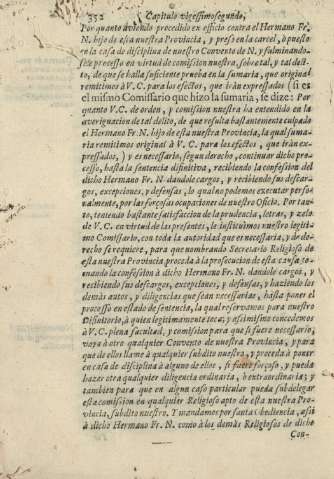 352 Capitulo vigessimosegundo,
Por quanto avìendo precedido ex officio contra el Hermano Fr.
N. hijo de esta nuestra Provincia, y preso en la carcel, ò puesto
en la casa de disciplina de nuestro Convento de N. y fulminando-
sele processo en virtud de comission nuestra, sobre tal, y tal dely-
cto, de que se halla suficiente prueba en la sumaria, que original
remitimos à V.C. para los efectos, que iràn expressados (si es
el mismo Comissario que hizo la sumaria, se dize: Por
quanto V.C. de orden, y comission nuestra ha entendido en la
averiguacion de tal delito, de que resulta bastantemente culpado
el Hermano Fr. N. hijo de esta nuestra Provincia, la qual suma-
ria remitimos original à V.C. para los efectos, que iràn ex-
pressados,) y es necessario, segun derecho, continuar dicho pro-
cesso, hasta la sentencia difinitiva, recibiendo la confession del
dicho Hermano Fr. N. dandole cargos, y recibiendo sus descar-
gos, excepciones, y defensas, lo qual no podemos executar perso-
nalmente, por las forçosas ocupaciones de nuestro Oficio. Por tan-
to, teniendo bastante satisfaccion de la prudencia, letras, y zelo
de V.C. en virtud de las presentes, le instituimos nuestro legiti-
mo Comissario, con toda la autoridad que es necessaria, y de de-
recho se requiere, para que nombrando Secretario Religioso de
esta nuestra Provincia proceda à la prosecucion de esta causa, to-
mando la confession à dicho Hermano Fr. N. dandole cargos, y
recibiendo sus descargos, excepciones, y defensas, y haziendo los
demàs autos, y diligencias que sean necessarias, hasta poner el
processo en estado de sentencia, la qual reservamos para nuestro
Difinitorio, à quien legitimamente toca; y assimismo concedemos
à V.C. plena facultad, y comission para que si fuere necessario,
vaya à otro qualquier Convento de nuestra Provincia, y para
que de ellos llame à qualquier subdito nuestro, y proceda à poner
en casa de disciplina à alguno de ellos, si fuere forçoso, y pueda
hazer otra qualquier diligencia ordinaria, ò extraordinaria; y
tambien para que en algun caso particular pueda subdelegar
esta comission en qualquier Religioso apto de esta nuestra Pro-
vincia, subdito nuestro. Y mandamos por santa obediencia, assi
à dicho Hermano Fr. N. como à los demàs Religiosos de dicho
Con-